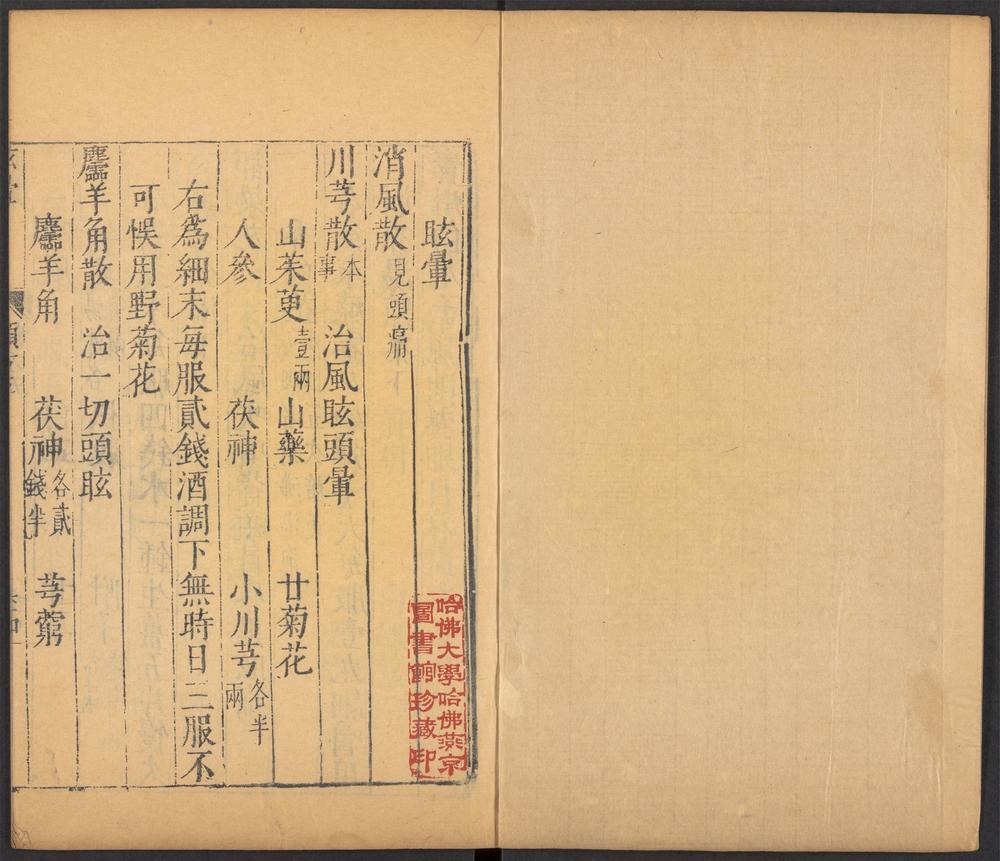 眩暈
消風散見頭痛下
川芎散本事 治風眩頭暈
山茱萸壹兩 山藥 甘菊花
人參 茯神 小川芎各半兩
右爲細末每服貳錢酒調下無時日三服不
可悞用野菊花
麢羊角散 治一切頭眩
麢羊角 茯神各貳錢半 芎藭
哈佛大學哈佛燕京
圖書館珍藏印